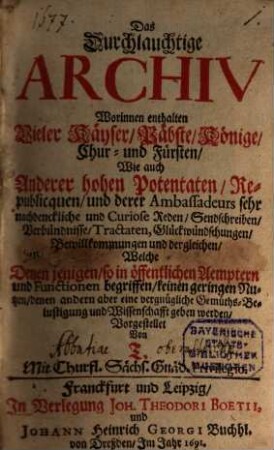 Das
Durchlauchtige
ARCHIV
Worinnen enthalten
Vieler Käyser/ Päbste/ Könige/
Chur- und Fürsten/
Wie auch
Anderer hohen Potentaten/ Re-
publicquen/ und derer Ambassadeurs sehr
nachdenckliche und Curiose Reden/ Sendschreiben/
Verbündnisse/ Tractaten, Glückwündschungen/
Bewillkommungen und dergleichen/
Welche
Denen jenigen/ so in öffentlichen Aemptern
und Functionen begriffen/ keinen geringen Nu-
tzen/ denen andern aber eine vergnügliche Gemüths-Be-
lustigung und Wissenschafft geben werden/
Vorgestellet
Von
T.
Mit Churfl. Sächs. Gnäd. Privilegio.
BAYERISCHE
STAATS-
BIBLIOTHEK
MUENCHEN
Franckfurt und Leipzig/
In Verlegung JOH. THEODORI BOETII,
und
JOHANN Heinrich GEORGI Buchhl.
von Dreßden/ Im Jahr 1691.